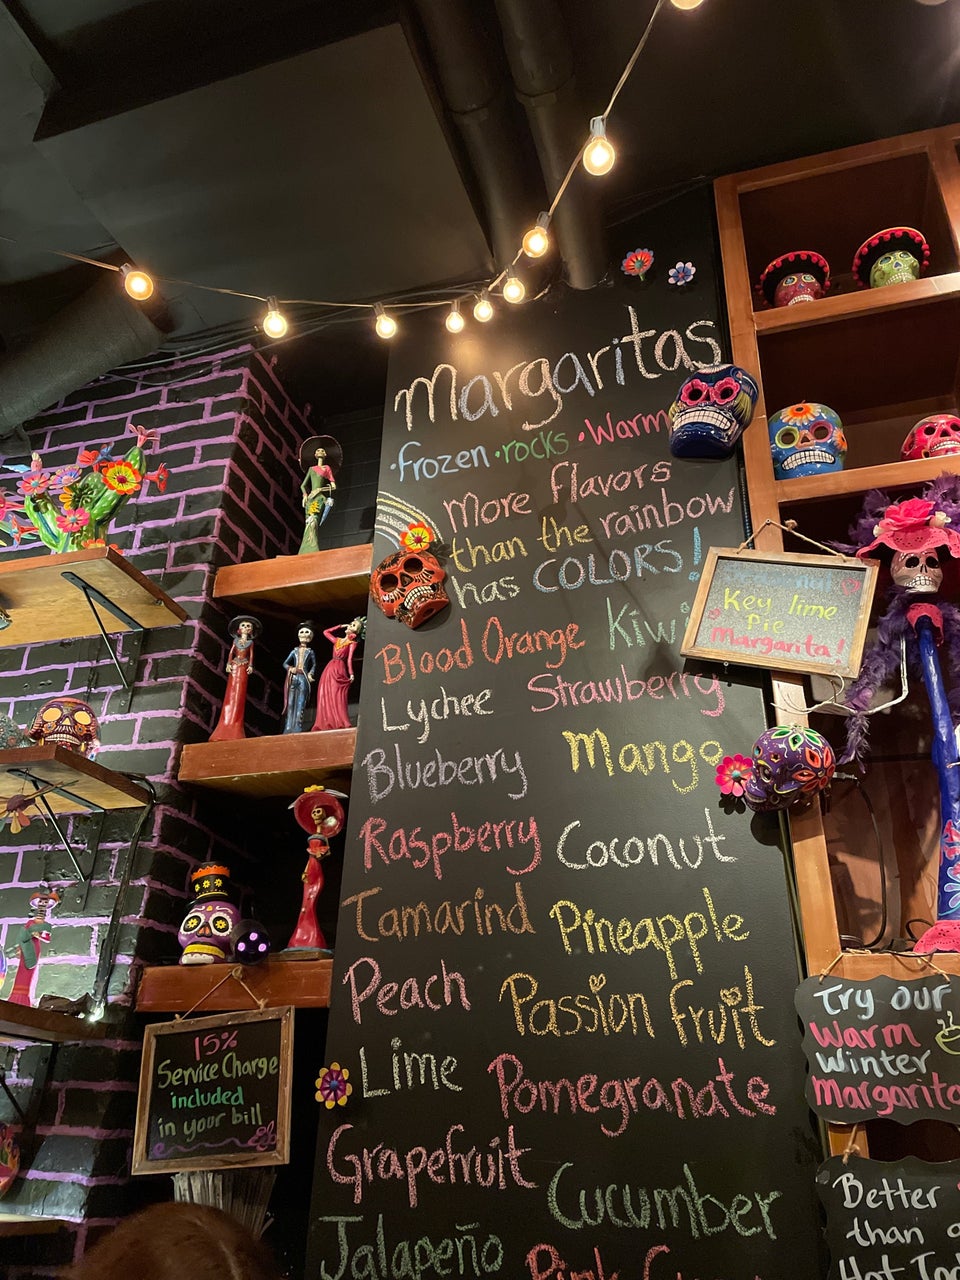 Margaritas
·frozen ·rocks ·Warm
More flavors
than the rainbow
has COLORS!
Blood Orange Kiwi
Lychee Strawberry
Blueberry Mango
Raspberry Coconut
Tamarind Pineapple
Peach Passion fruit
Lime Pomegranate
Grapefruit
Cucumber
Jalapeño
Pink
Key lime
Pie
Margarita!
15%
Service Charge
included
in your bill
Try our
Warm
Winter
Margarita
Better
than a
Hot